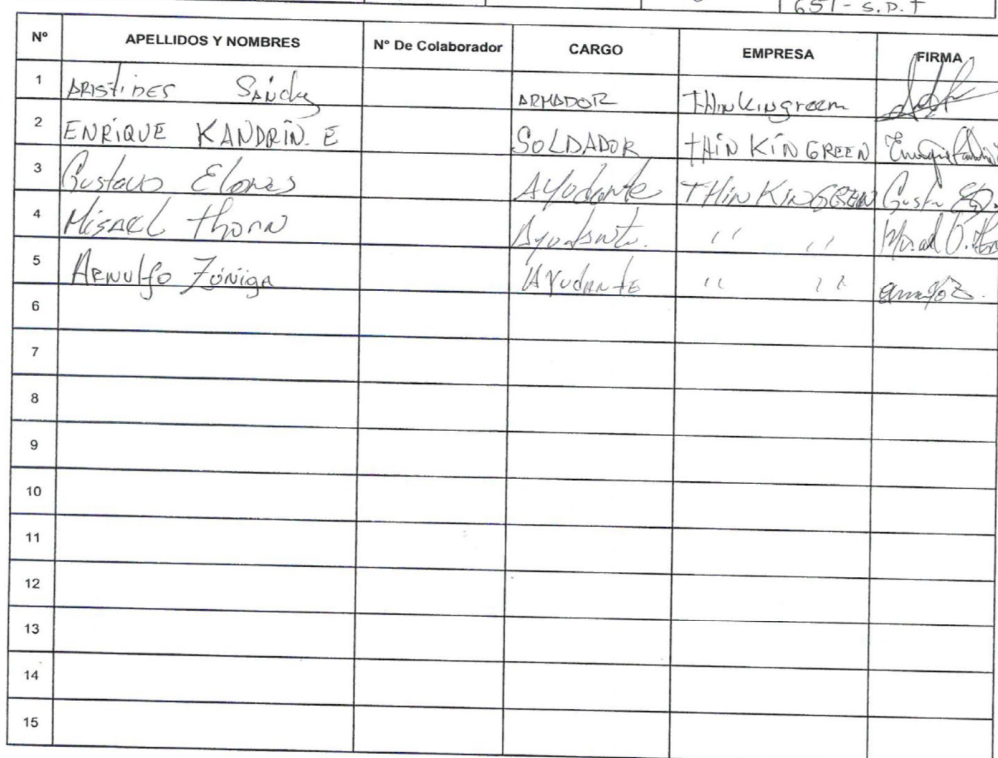 651 - S.D.T
Nº APELLIDOS Y NOMBRES Nº De Colaborador CARGO EMPRESA FIRMA
1 ARISTIDES Sánchz ARMADOR THinkingreem
2 ENRIQUE KANDRÍN. E SOLDADOR tHiN KiN GREEN
3 Gustavo Flores Ayudante THiN KiNGREEN
4 MISAEL thorn Ayudante. '' ''
5 ARNULfo Zúñiga AYudante '' ''
6
7
8
9
10
11
12
13
14
15